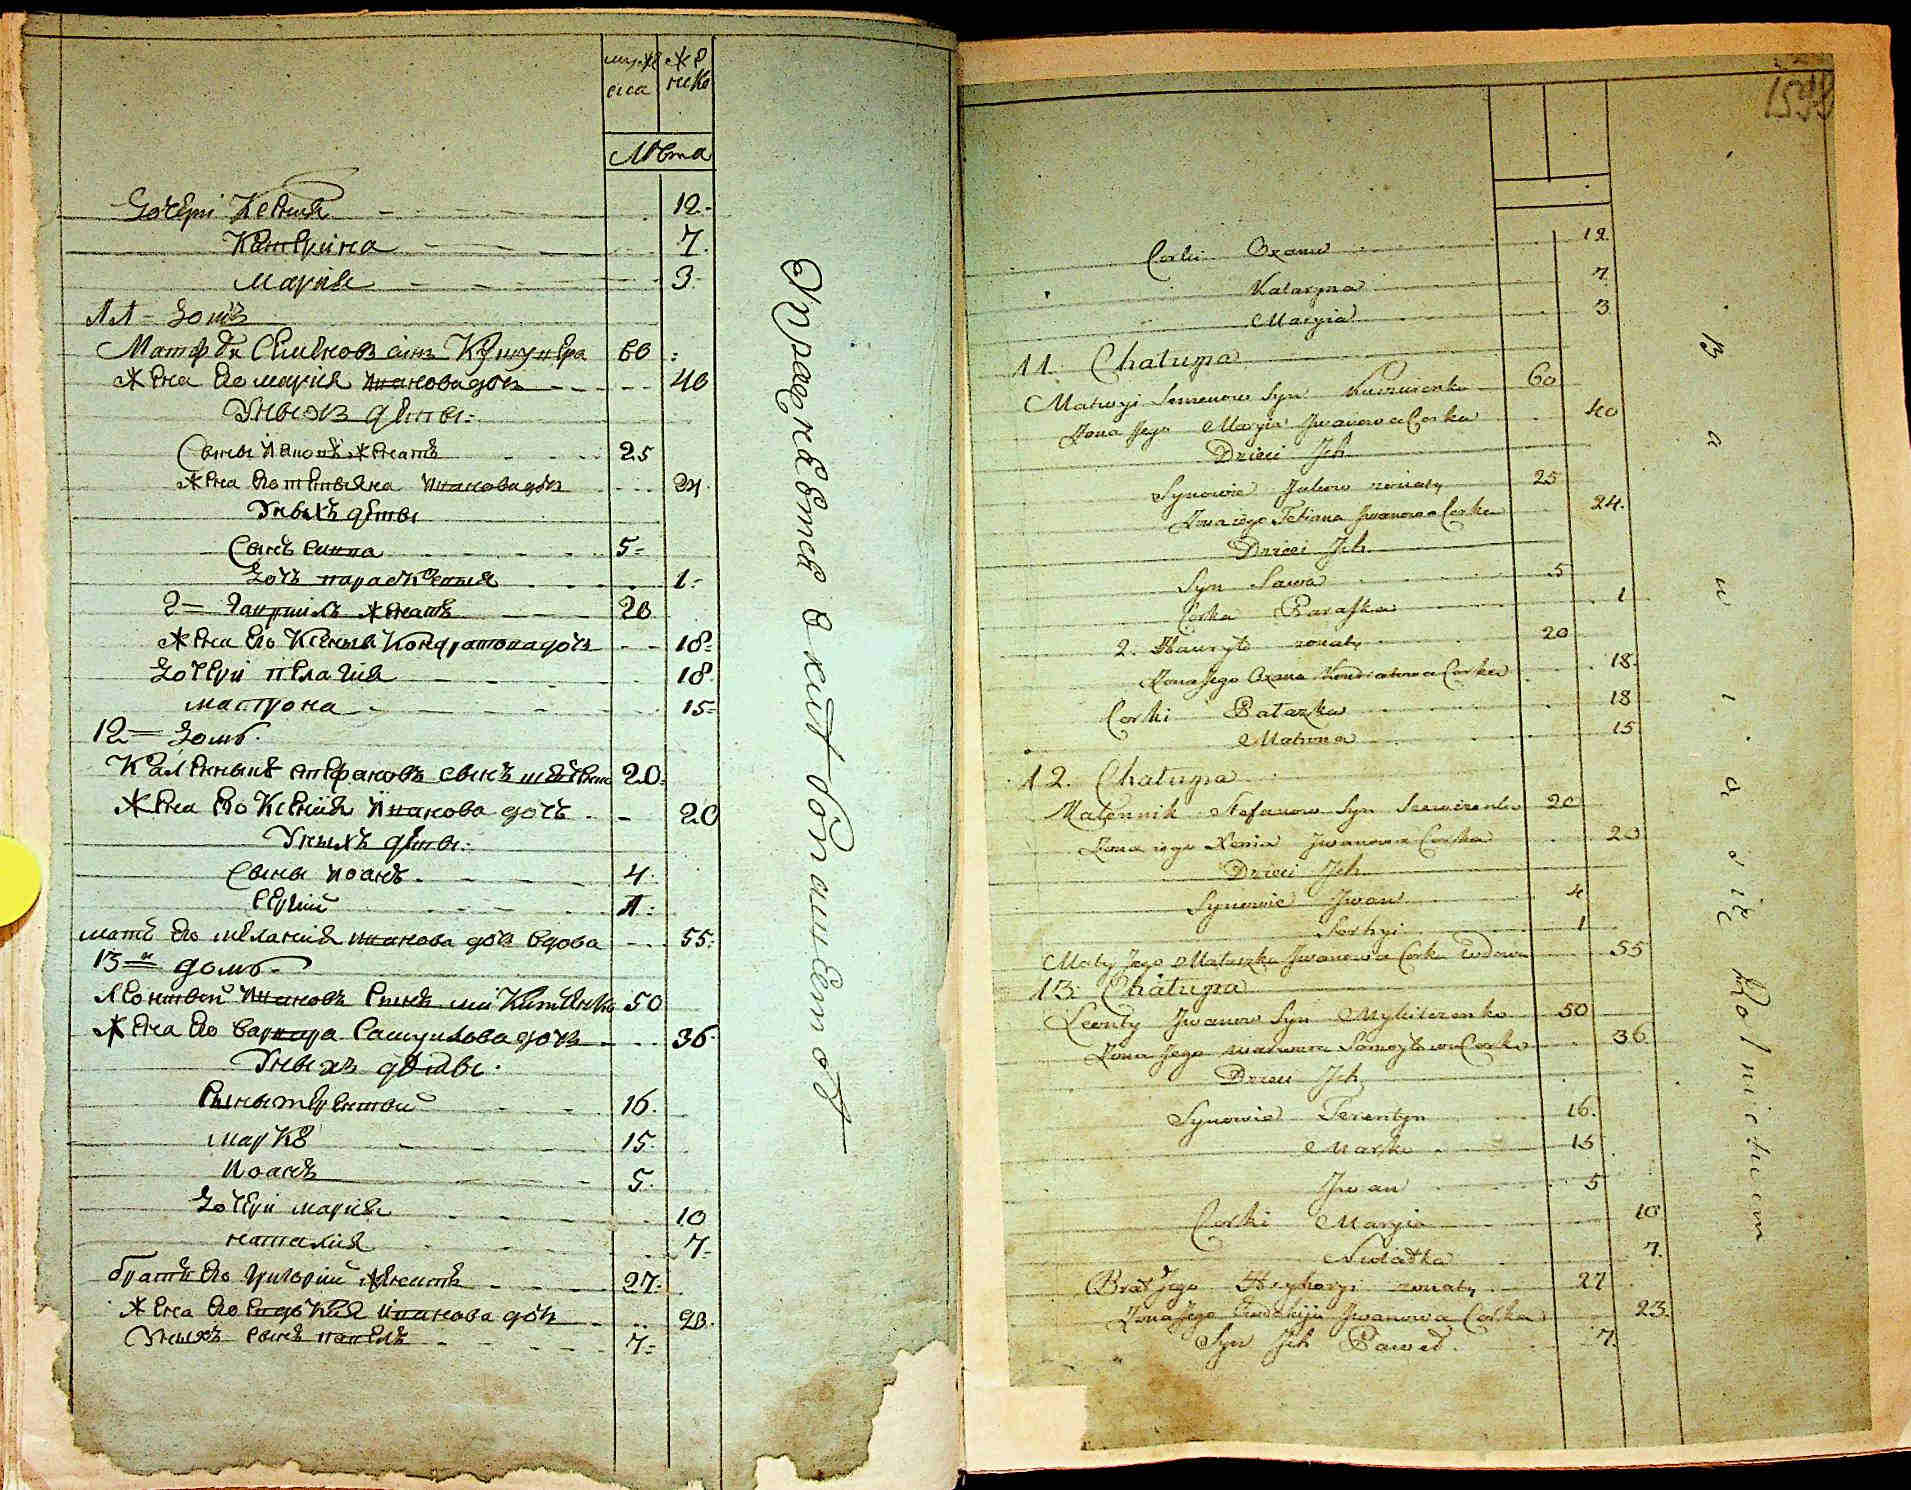 мужеска женска
Лѣта
Дочери Ксения 12
Катерина 7
Мария 3
11 домъ
Матфѣй Семенов синъ 60
Жена его Мария Иванова дочь 40
У них дети
Сыны женатъ 25
Жена его Татьяна Иванова дочь 24
У них дети
Сынъ Савва 5
Дочъ Параскевия 1
2 Гавриилъ женатъ 20
Жена его Ксения Кондратова дочь 18
Дочери Пелагия 18
Матрона 15
12 домъ
Стефановъ сынъ 20
Жена его Ксения Иванова дочъ 20
У нихъ дети
Сыны Иоанъ 4
Сергий 1
мать его Мелания Иванова дочь вдова 55
13й домъ
Леонтий Ивановъ сынъ 50
Жена его Варвара Самуилова дочь 36
У них дети
Сыны Терентий 16
Марко 15
Иоанъ 5
Дочери Мария 10
Наталия 7
братъ его Григорий женатъ 27
Жена его Евдокия Иванова дочь 23
У нихъ сынъ Павелъ 7
Упражняется в хлѣбопашестве
1598
Corki Oxana 12
Kataryna 7
Maryia 3
11. Chalupa
Matwyi Semenow Syn 60
Zona Jego Maryia Jwanowa Corka 40
Dzieci Jch
Synowie Jakow zonaty 25
Zona iego Tetiana Jwanowa Corka 24.
Dzieci Jch
Syn Sawa 5
Corka Paraska 1
2. Hawryło zonaty 20
Zona Jego Oxana Kondratowa Corka 18
Corki Palazka 18
Matrona 15
12. Chalupa
Kalennik Stefanow Syn 20
Zona iego Xenia Jwanowa Corka 20
Dzieci Jch
Synowie Jwan 4
Serhyi 1
Maty Jego Malaszka Jwanowa Corka Wdowa 55
13. Chalupa
Leonty Jwanow Syn Mykitenko 50
Zona Jego Warwara Samoyłowa Corka 36
Dzieci Jch
Synowie Terentyi 16.
Marko 15
Jwan 5
Corki Maryia 10
Natałka 7.
Brat Jego Hryhoryi zonaty 27
Zona Jego Jewdokija Jwanowa Corka 23.
Syn Jch Paweł 7.
Bawi się Rolnictwem